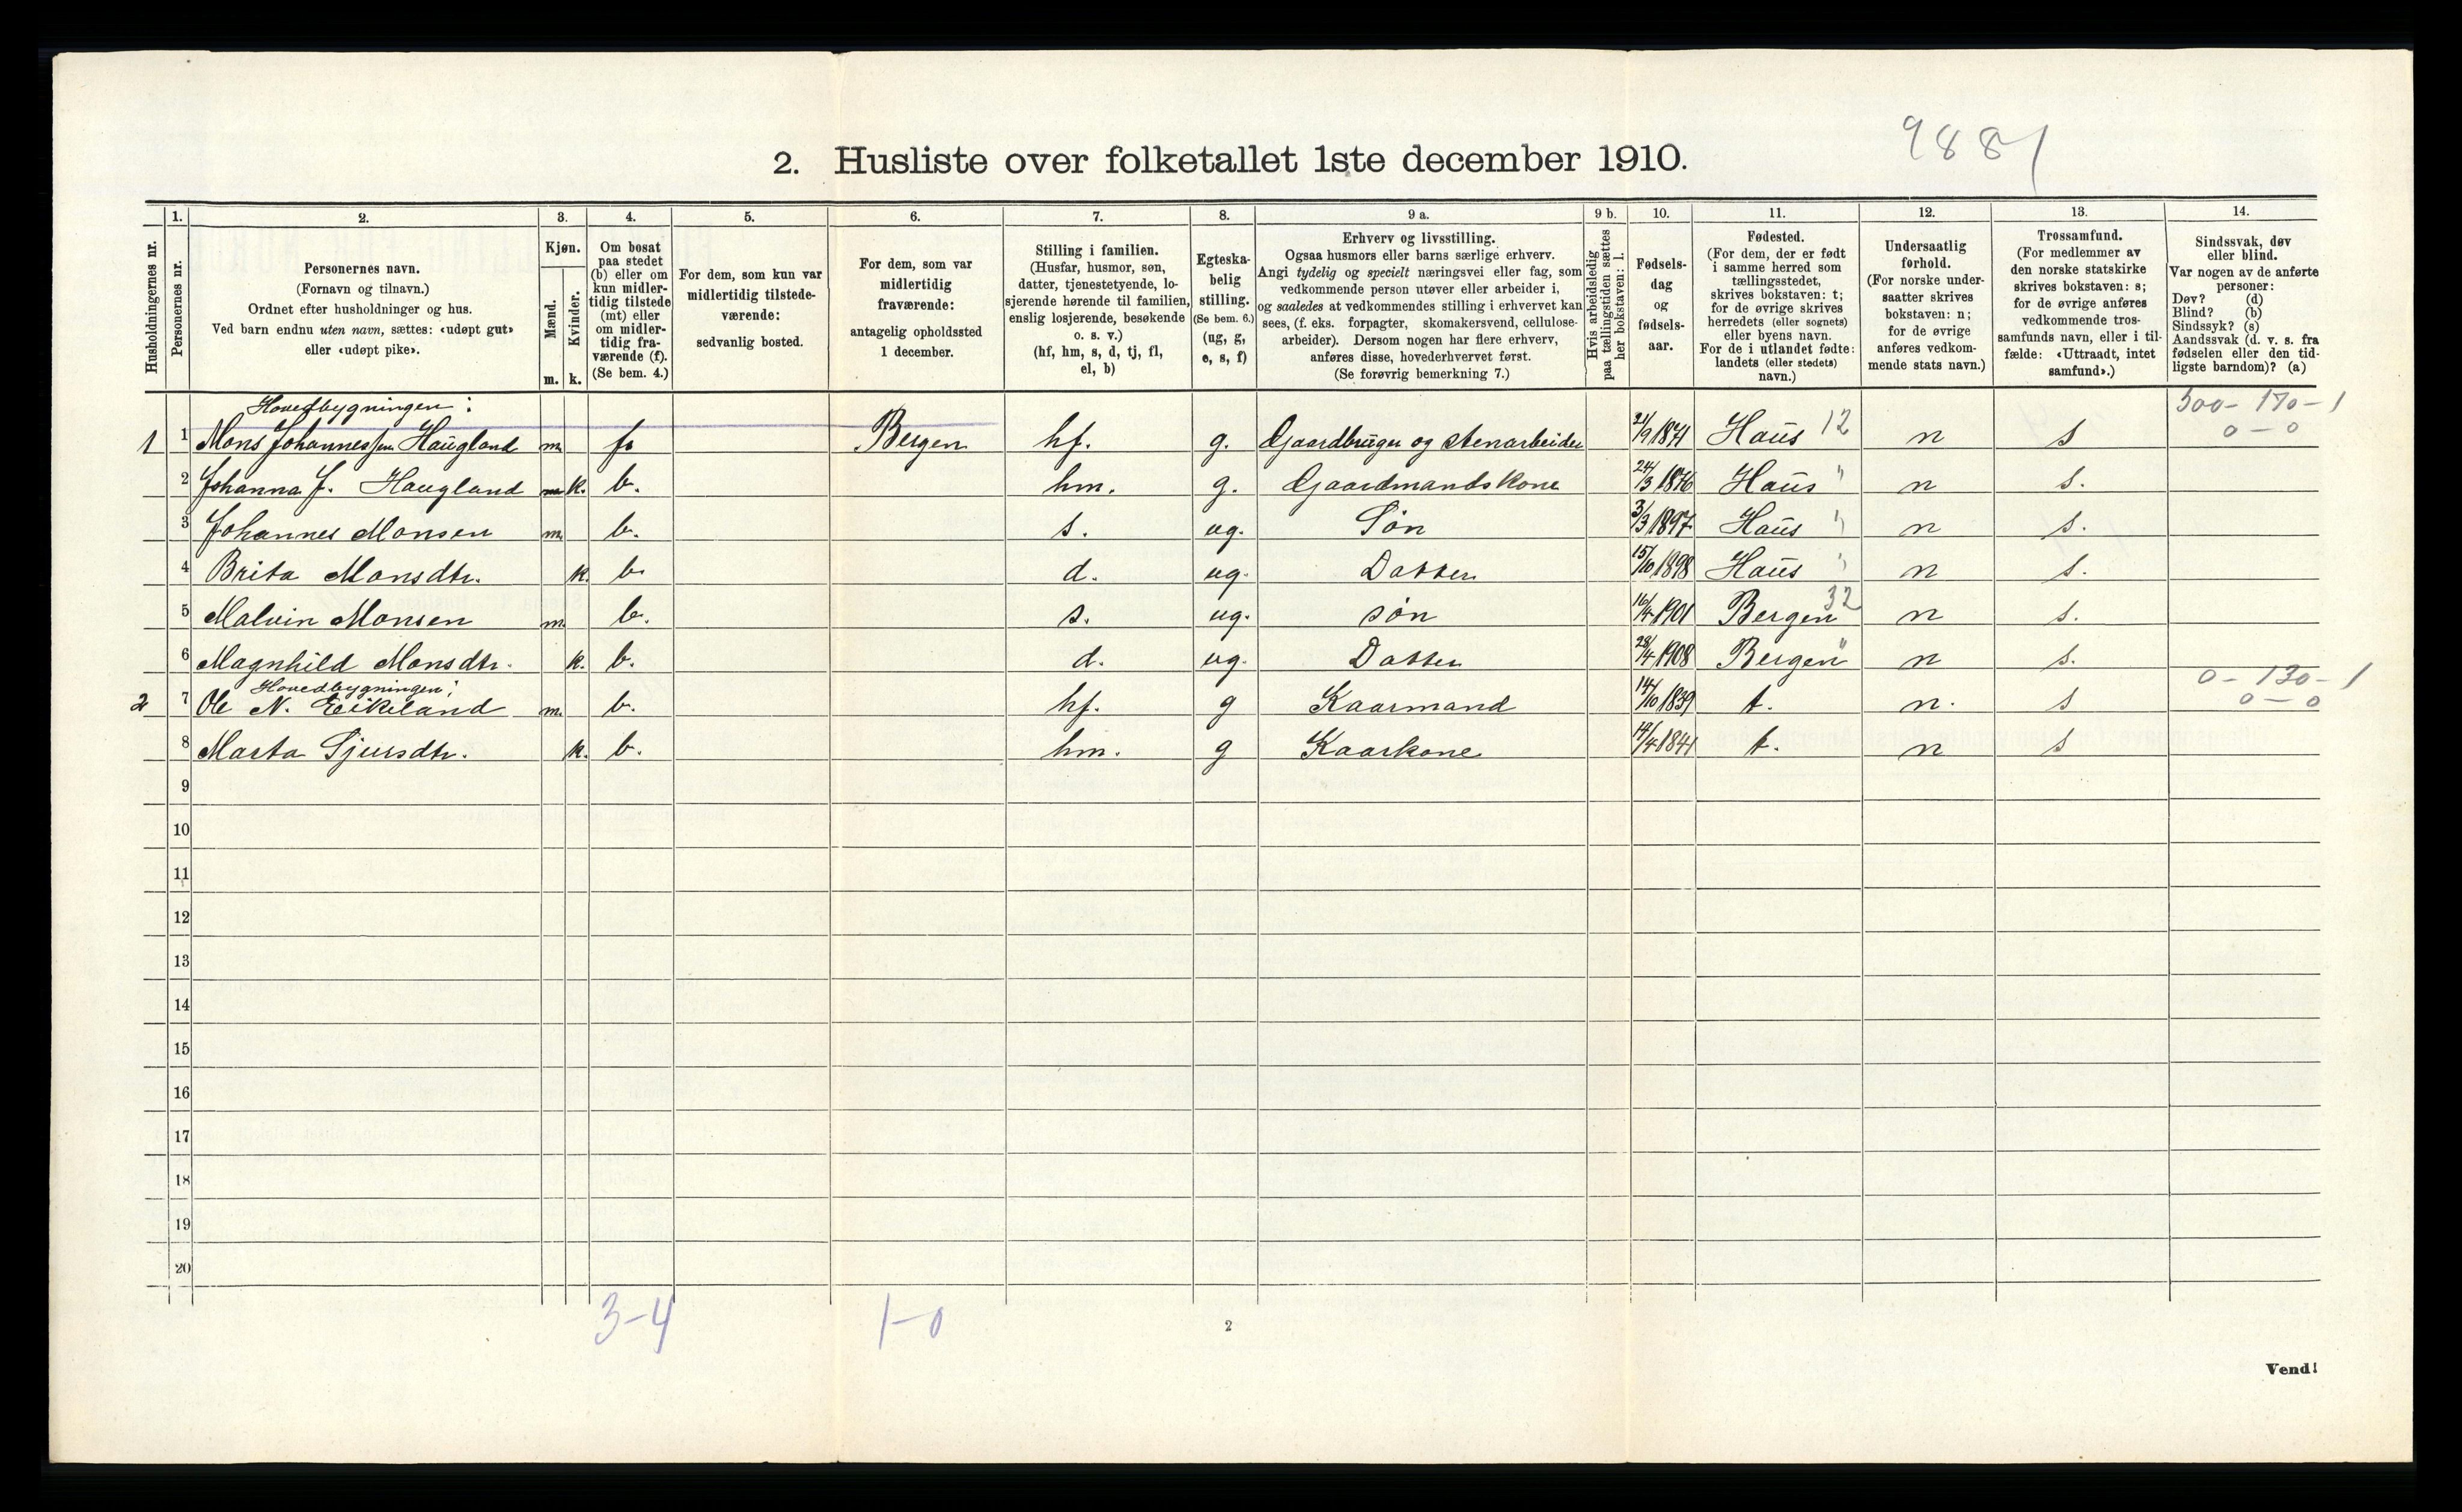 9881
2. Husliste over folketallet 1ste december 1910.
Husholdningernes nr.
1.
Personernes nr.
2.
Personernes navn.
(Fornavn og tilnavn.)
Ordnet efter husholdninger og hus.
Ved barn endnu uten navn, sættes: «udøpt gut»
eller «udøpt pike».
3.
Kjøn.
Mænd.
Kvinder.
m. k.
4.
Om bosat
paa stedet
(b) eller om
kun midler-
tidig tilstede
(mt) eller
om midler-
tidig fra-
værende (f).
(Se bem. 4.)
5.
For dem, som kun var
midlertidig tilstede-
værende:
sedvanlig bosted.
6.
For dem, som var
midlertidig
fraværende:
antagelig opholdssted
1 december.
7.
Stilling i familien.
(Husfar, husmor, søn,
datter, tjenestetyende, lo-
sjerende hørende til familien,
enslig losjerende, besøkende
o. s. v.)
(hf, hm, s, d, tj, fl,
el, b)
8.
Egteska-
belig
stilling.
(Se bem. 6.)
(ug, g,
e, s, f)
9 a.
Erhverv og livsstilling.
Ogsaa husmors eller barns særlige erhverv.
Angi tydelig og specielt næringsvei eller fag, som
vedkommende person utøver eller arbeider i,
og saaledes at vedkommendes stilling i erhvervet kan
sees, (f. eks. forpagter, skomakersvend, cellulose-
arbeider). Dersom nogen har flere erhverv,
anføres disse, hovederhvervet først.
(Se forøvrig bemerkning 7.)
9 b.
Hvis arbeidsledig
paa tællingstiden sættes
her bokstaven: l.
10.
Fødsels-
dag
og
fødsels-
aar.
11.
Fødested.
(For dem, der er født
i samme herred som
tællingsstedet,
skrives bokstaven: t;
for de øvrige skrives
herredets (eller sognets)
eller byens navn.
For de i utlandet fødte:
landets (eller stedets)
navn.)
12.
Undersaatlig
forhold.
(For norske under-
saatter skrives
bokstaven: n;
for de øvrige
anføres vedkom-
mende stats navn.)
13.
Trossamfund.
(For medlemmer av
den norske statskirke
skrives bokstaven: s;
for de øvrige anføres
vedkommende tros-
samfunds navn, eller i til-
fælde: «Uttraadt, intet
samfund».)
14.
Sindssvak, døv
eller blind.
Var nogen av de anførte
personer:
Døv? (d)
Blind? (b)
Sindssyk? (s)
Aandssvak (d. v. s. fra
fødselen eller den tid-
ligste barndom)? (a)
Hovedbygningen: 500 - 170 - 1
1 1 Mons Johannessen Haugland m. f. Bergen hf. g. Gaardbruger og Stenarbeider 21/9 1871 Haus 12 n s 0 - 0
2 Johanna J. Haugland k. b. hm. g. Gaardmandskone 24/3 1876 Haus " n s.
3 Johannes Monsen m. b. s. ug. Søn 3/3 1897 Haus " n s.
4 Brita Monsdtr. k. b. d. ug. Datter 15/10 1898 Haus " n s.
5 Malvin Monsen m. b. s. ug. søn 16/4 1901 Bergen 32 n s.
6 Magnhild Monsdtr. k. b. d. ug. Datter 28/4 1908 Bergen " n s.
Hovedbygningen: 0 - 130 - 1
2 7 Ole N. Eikeland m. b. hf. g Kaarmand 14/10 1839 t. n. s 0 - 0
8 Marta Sjursdtr. k. b. hm. g Kaarkone 19/4 1841 t. n s
9
10
11
12
13
14
15
16
17
18
19
20
3-4 1-0
2
Vend!